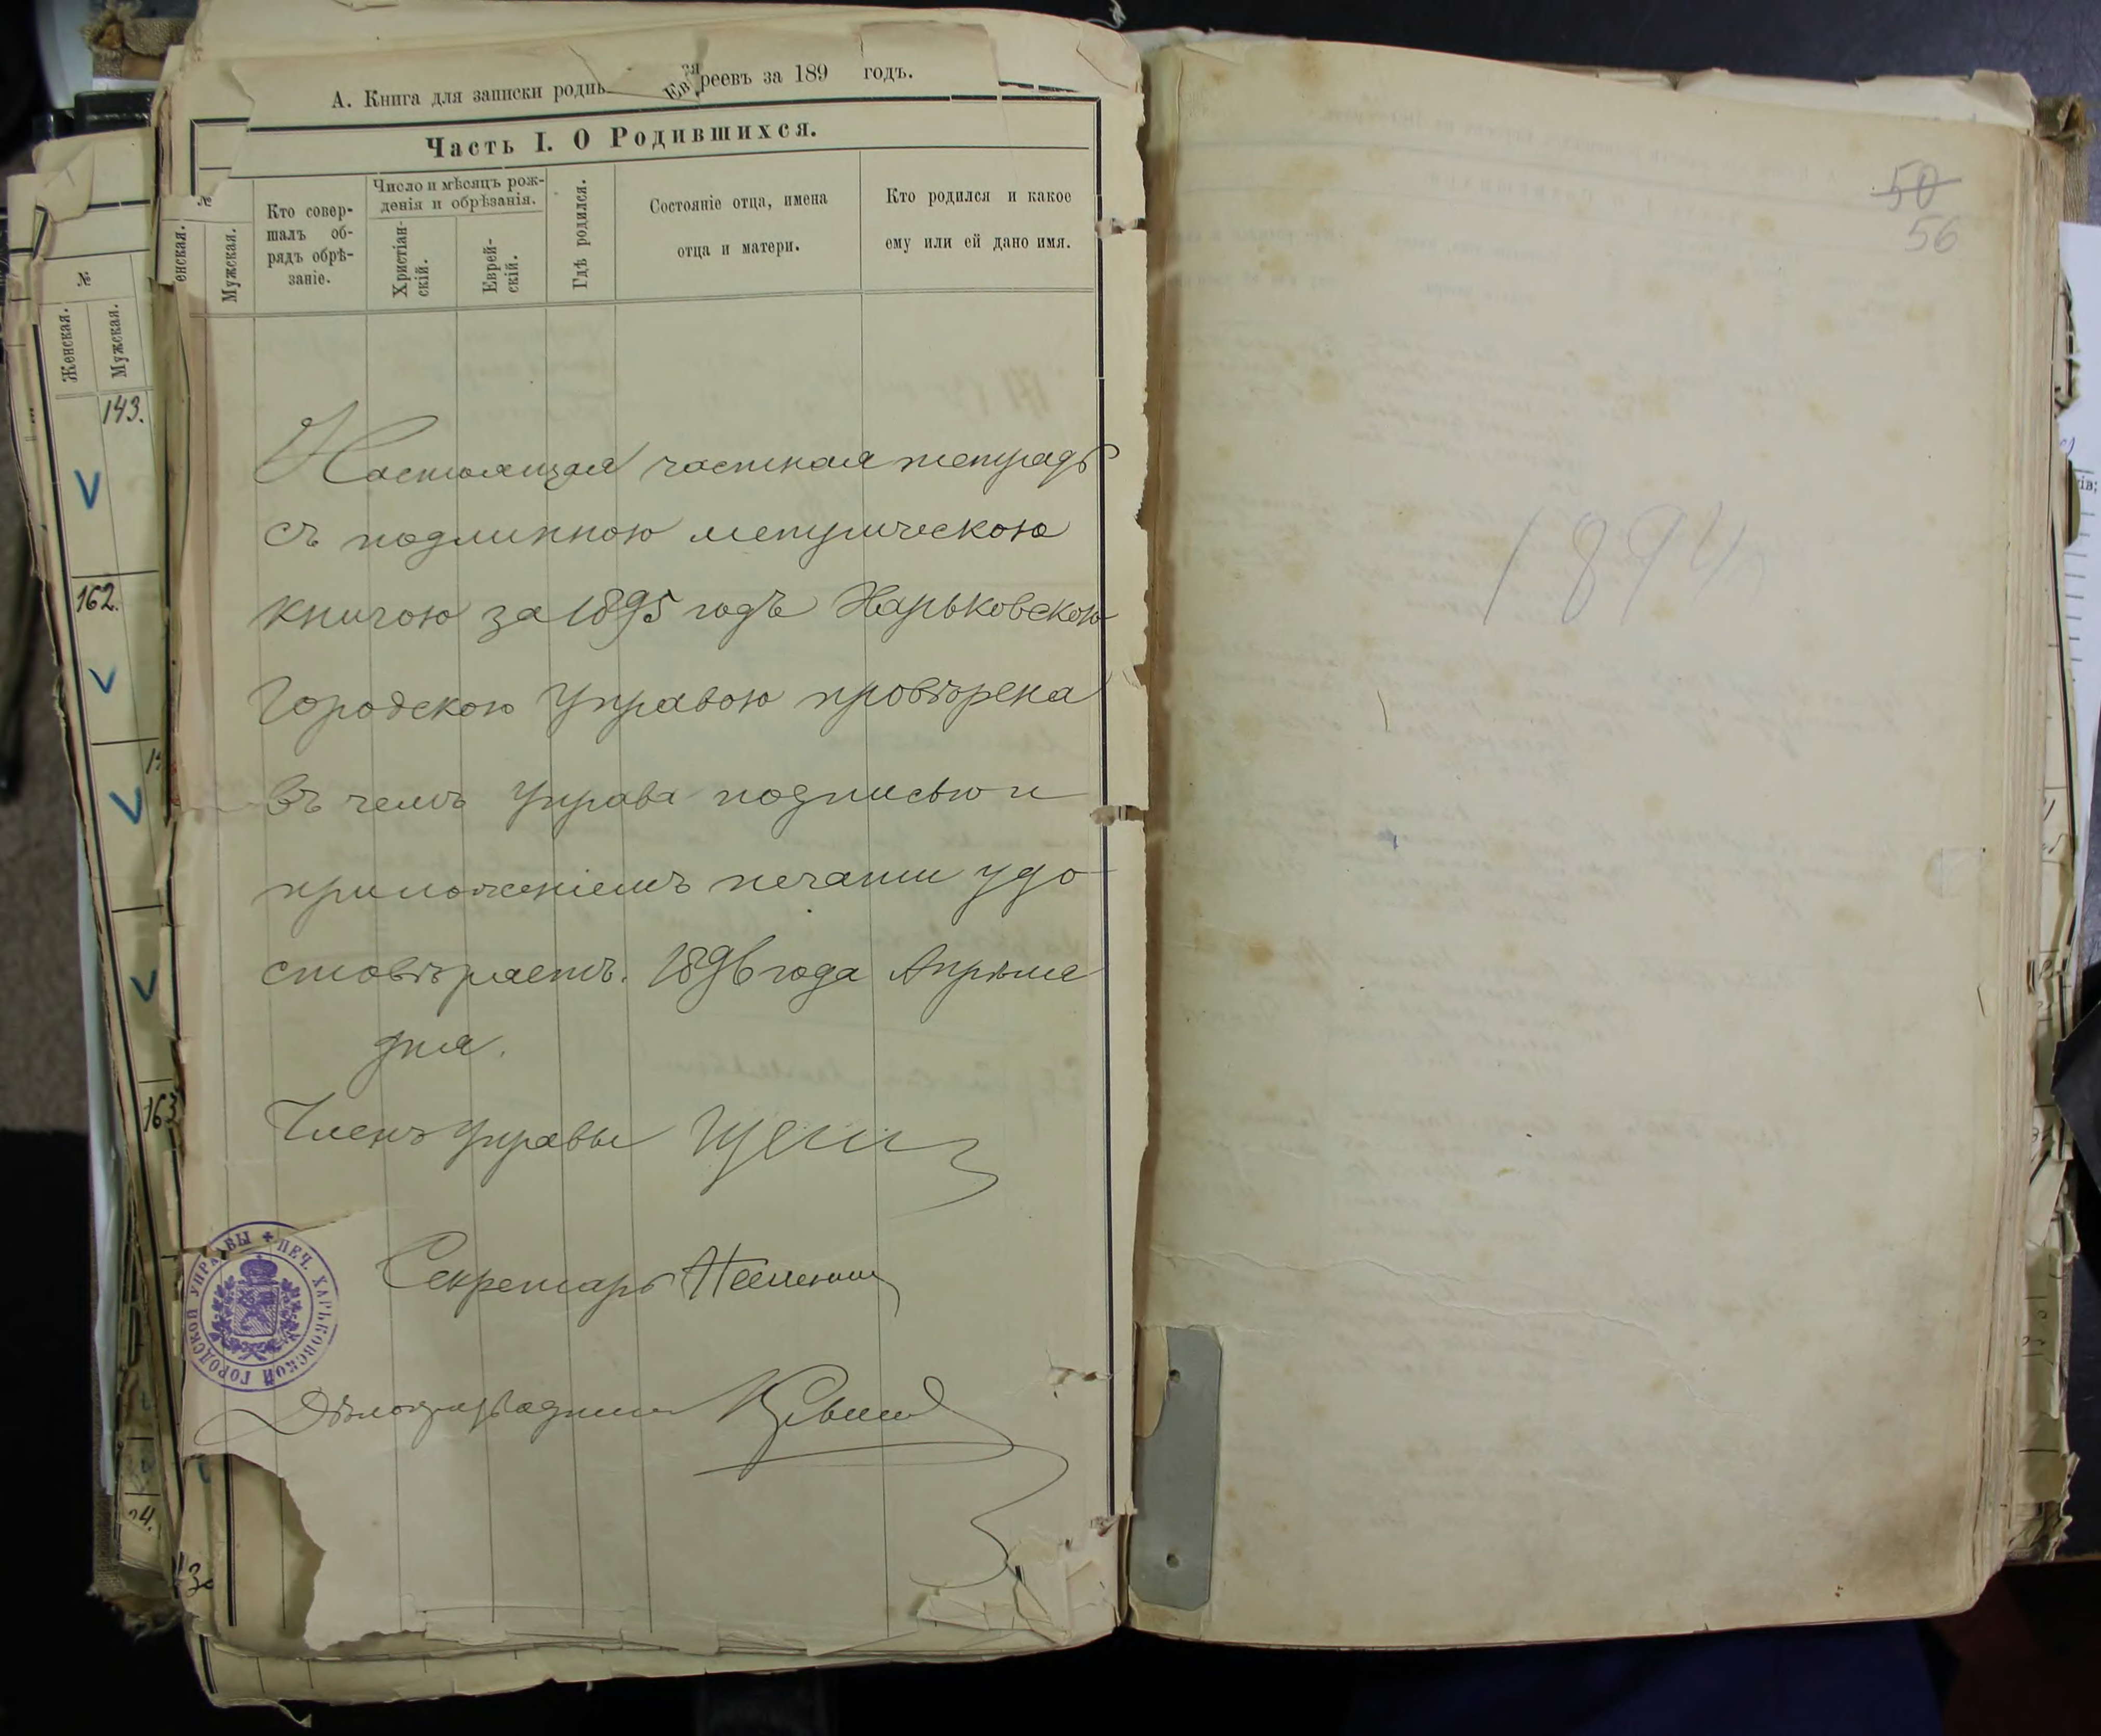 А. Книга для записки родив реевъ за 189 годъ.
Часть I. О Родившихся.
№
енская.
Мужская.
Кто совер-
шалъ об-
рядъ обрѣ-
заніе.
Число и мѣсяцъ рож-
денія и обрѣзанія.
Христіан-
скій.
Еврей-
скій.
Гдѣ родился.
Состояніе отца, имена
отца и матери.
Кто родился и какое
ему или ей дано имя.
№
Женская.
Мужская.
143.
162.
163
Настоящая частная тетрадь
съ подлинною метрическою
книгою за 1895 годъ Харьковскою
Городскою Управою провѣрена
въ чемъ Управа подписью и
приложеніемъ печати удо-
стовѣряетъ. 1896 года Апрѣля
дня.
Членъ Управы
Секретарь
ПЕЧ. ХАРЬКОВСКОЙ ГОРОДСКОЙ УПРАВЫ
Дѣлопроизводитель
50
56
1894